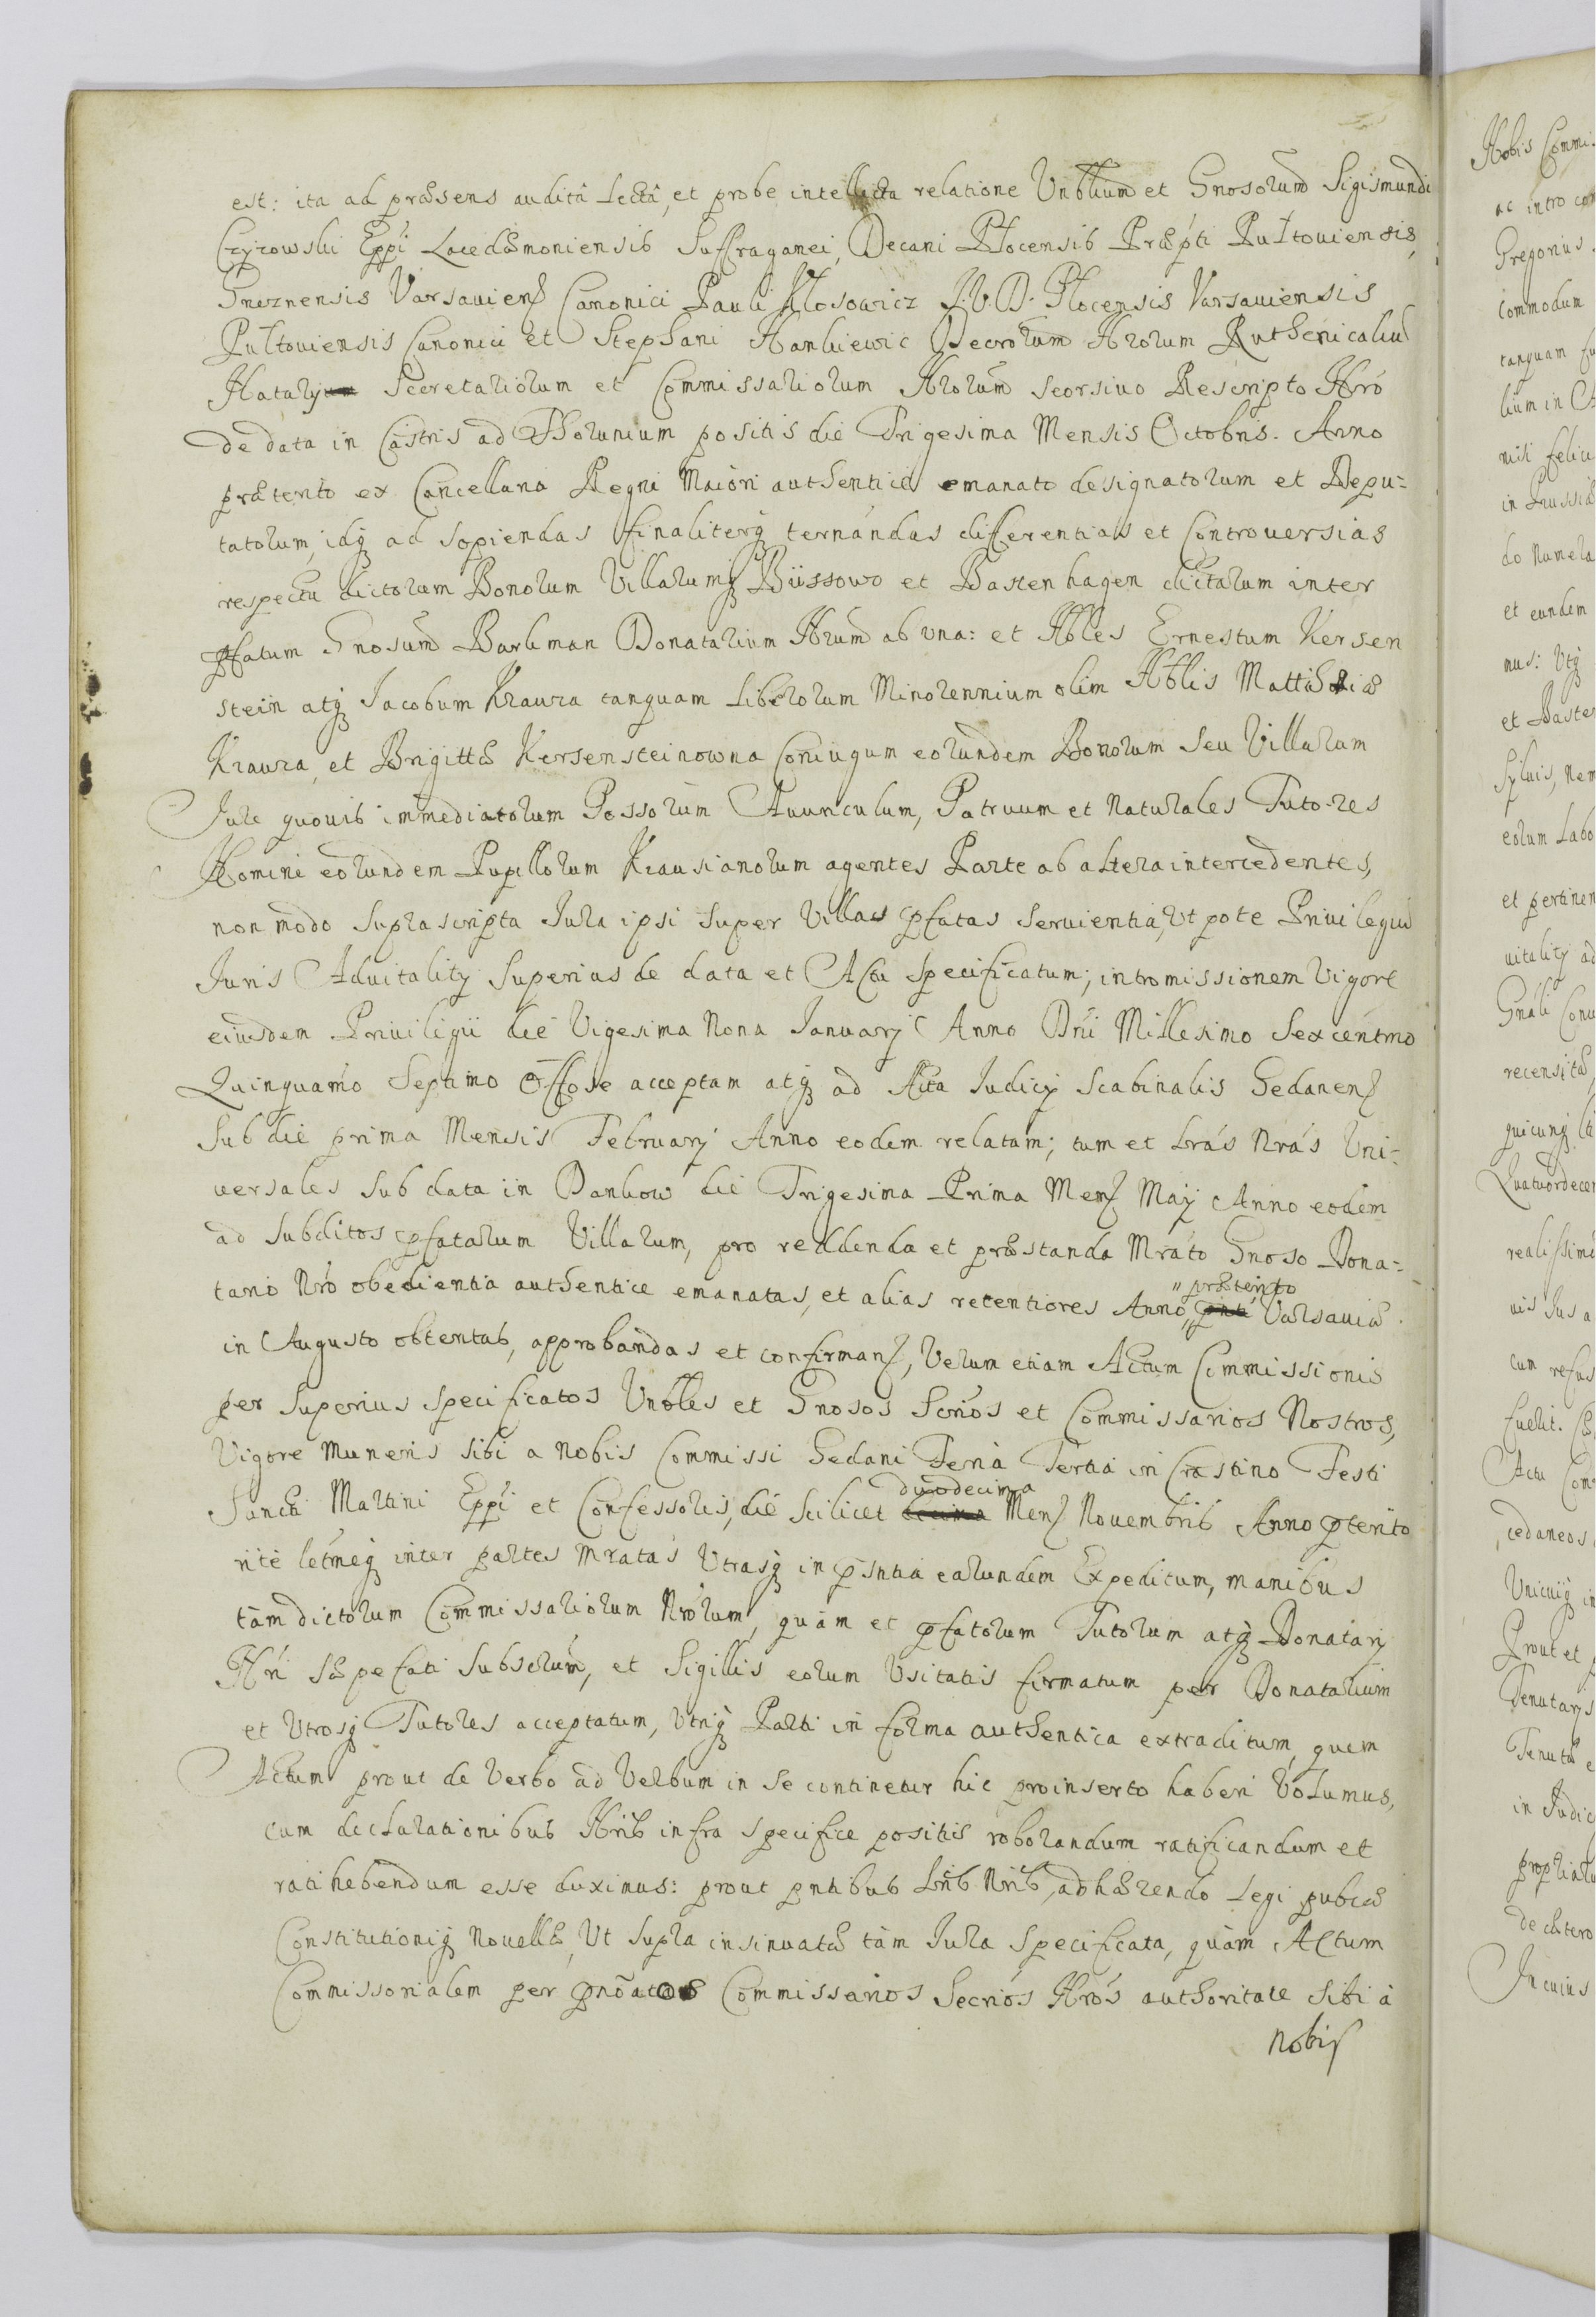 est: ita ad præsens auditâ Lectâ, et probe intellecta relatione Vnblium et Gnosorum Sigismundi
Czyzowski Eppi Lacedæmoniensis Suffraganei, Decani Plocensis Præpti Pultouiensis,
Gneznensis Varsauiens Canonici Pauli Klosowicz J.V.D. Plocensis Varsauiensis
Pultouiensis Canonici et Stephani Hankiewic Decrorum Nrorum Ruthenicaliu
Natarij Secretariorum et Commissariorum Nrorum seorsiuo Rescripto Nro
de data in Castris ad Thorunium positis die Trigesima Mensis Octobris. Anno
prætento ex Cancellaria Regni Maiori authentice emanato designatorum et Depu-
tatorum, idq ad sopiendas finaliterq ternandas differentias et Controuersias
respectu dictorum Bonorum Villarumq Büssowo et Bastenhagen dictarum inter
pfatum Gnosum Barkman Donatarium Nrum ab vna: et Nbles Ernestum Kersen
stein atq Jacobum Krauza tanquam Liberorum Minorennium olim Nblis Matthiæ
Krauza, et Brigittæ Kersensteinowna Coniugum eorundem Bonorum seu Villarum
Jure quouis immediatorum Possorum Auunculum, Patruum et Naturales Tutores
Nomine eorundem Pupillorum Krausianorum agentes Parte ab altera intercedentes,
non modo suprascripta Jura ipsi super Villas pfatas seruientia, Vtpote Priuilegiu
Juris Aduitalitij Superius de data et Actu Specificatum; intromissionem Vigore
eiusdem Priuilegii die Vigesima Nona Januarij Anno Dni Millesimo Sexcentmo
Quinquamo Septimo Offose acceptam atq ad Acta Judicij Scabinalis Gedanens
Sub die prima Mensis Februarij Anno eodem relatam; tum et Lras Nras Vni-
uersales sub data in Dankow die Trigesima Prima Mens Maij Anno eodem
ad Subditos pfatarum Villarum, pro reddenda et præstanda Mrato Gnoso Dona-
tario Nro obedientia authentice emanatas, et alias recentiores Anno „prætento Varsauiæ
in Augusto obtentas, approbandas et confirmans, Verum etiam Actum Commissionis
per Superius specificatos Vnbles et Gnosos Scrios et Commissarios Nostros,
Vigore muneris sibi a Nobis Commissi Gedani Feria Tertia in Crastino Festi
Sancti Martini Eppi et Confessoris, die scilicet duodecima Mens Nouembris Anno ptento
rite letmeq inter partes mratas Vtrasq in psntia earundem Expeditum, manibus
tam dictorum Commissariorum Nrorum, quam et pfatorum Tutorum atq Donatarij
Nri sæpefati Subscrum, et Sigillis eorum Vsitatis firmatum per Donatarium
et Vtrosq Tutores acceptatum, Vtriq Parti in forma authentica extraditum, quem
Actum prout de Verbo ad Verbum in se continetur hic pro inserto haberi Volumus,
cum declarationibus Nris infra specifice positis roborandum ratificandum et
ratihebendum esse duximus: prout pntibus Lris Nris, adhærendo Legi pubcæ
Constitutioniq Nouellæ, Vt supra insinuatæ tàm Jura Specificata, quàm Actum
Commissorialem per pnoatos Commissarios Secrios Nros authoritate sibi à
nobis